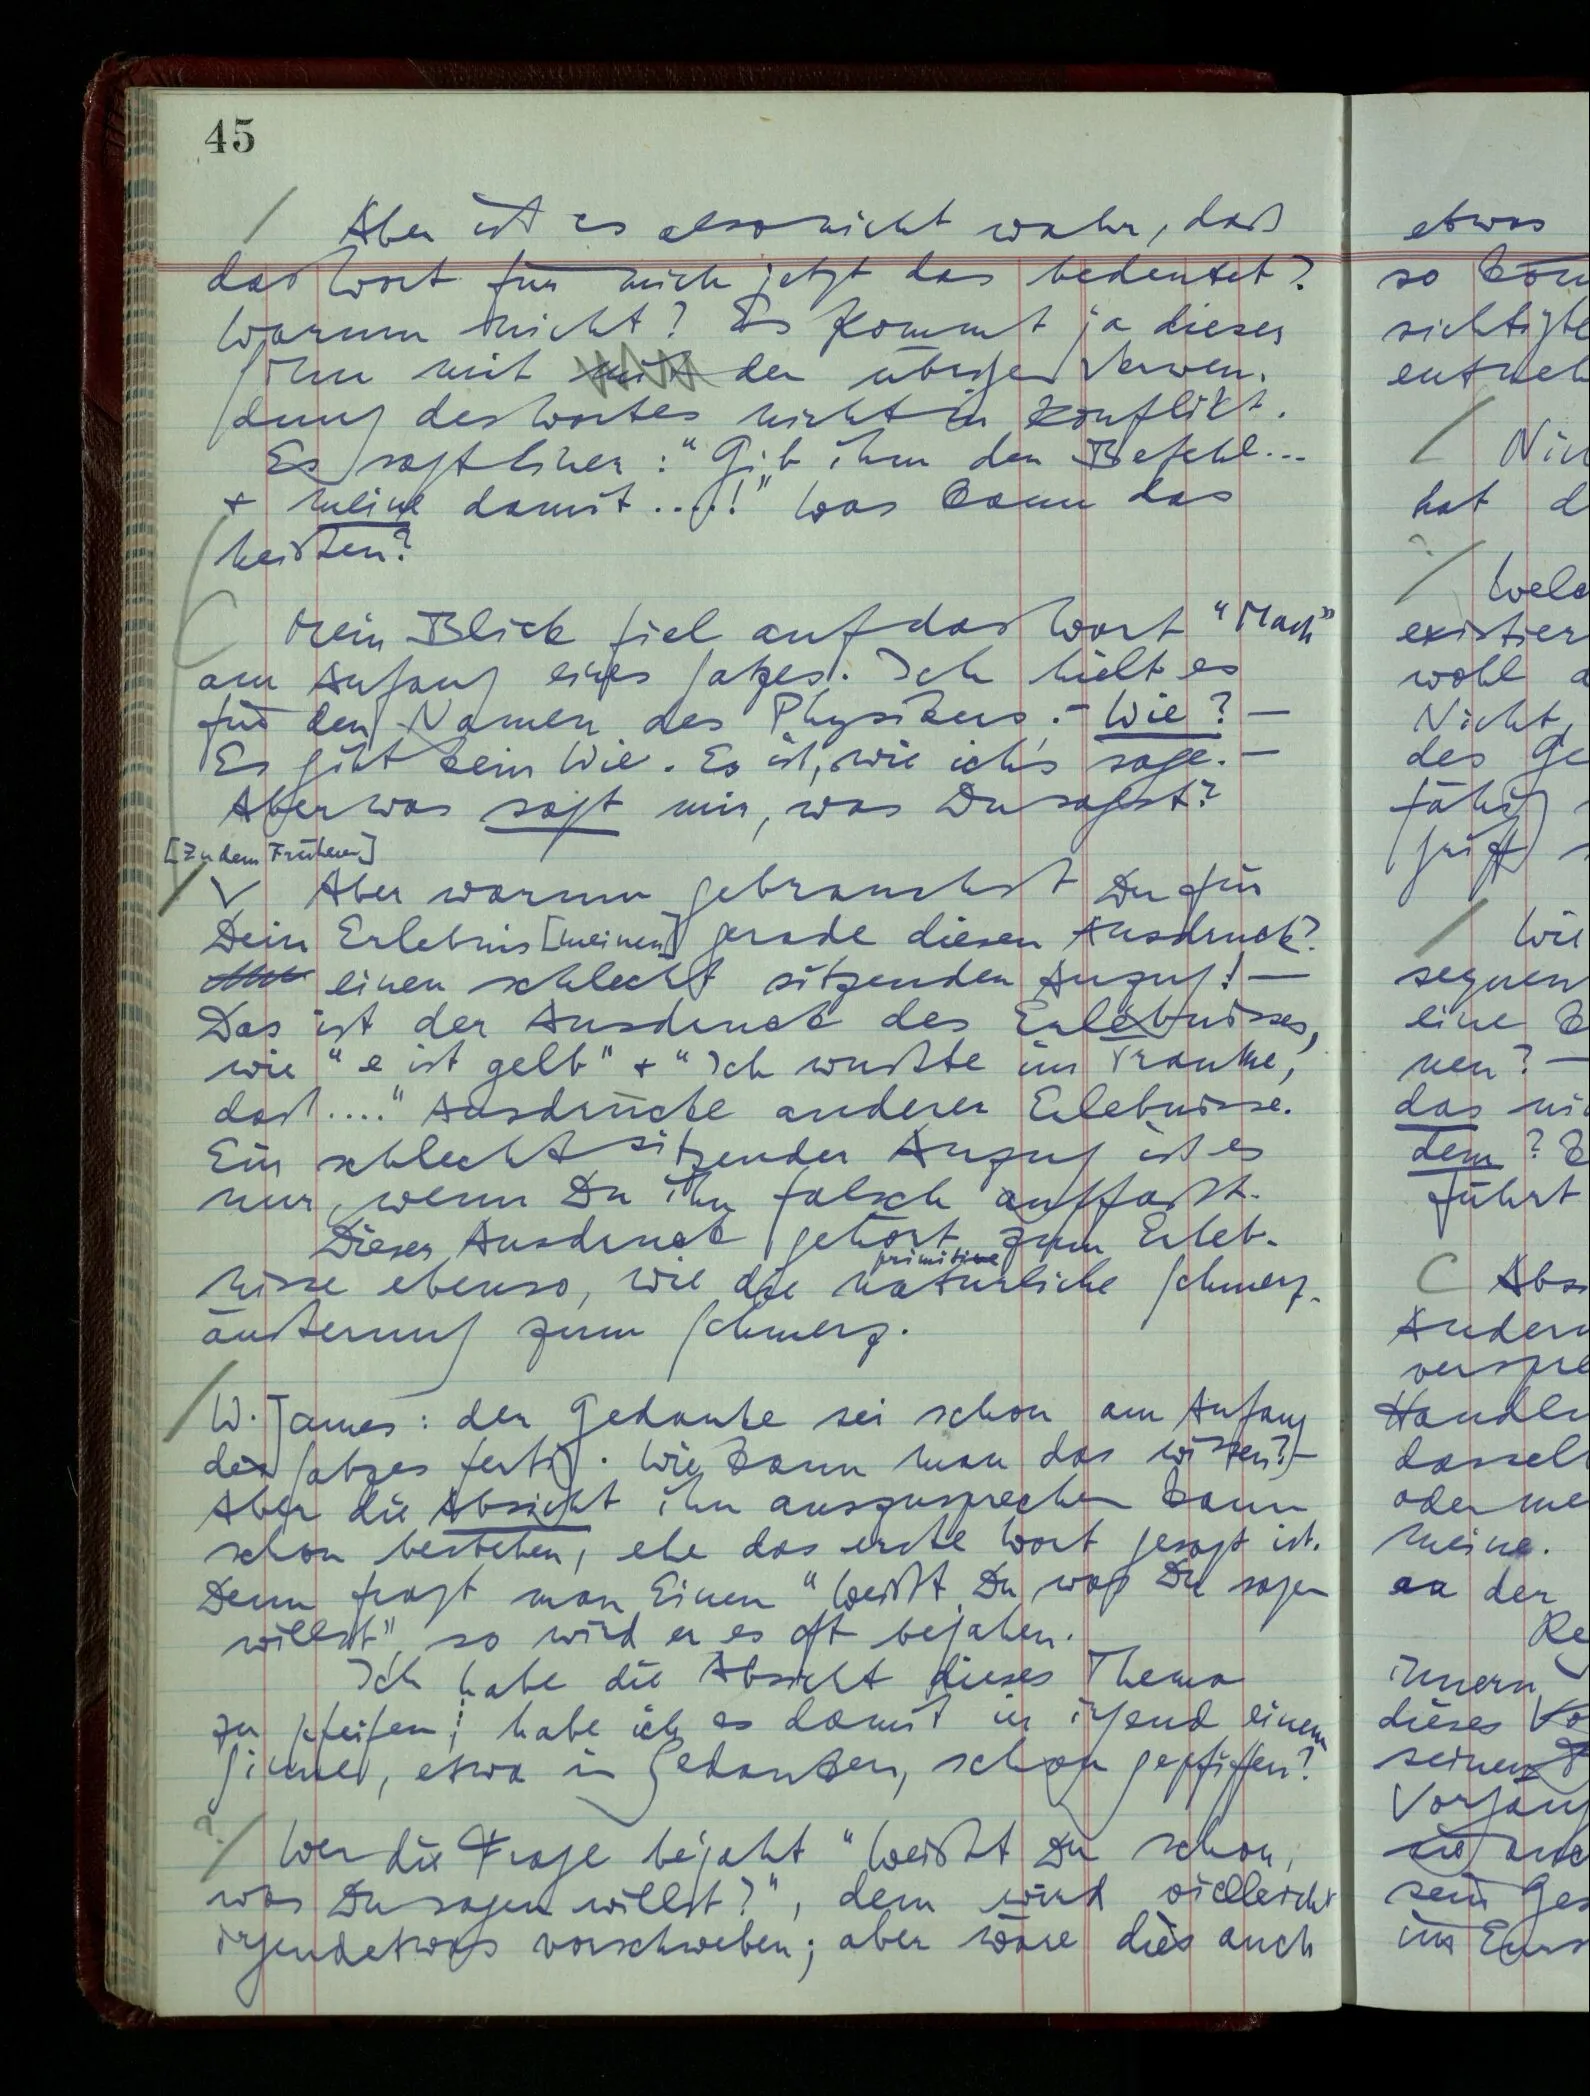 45
Aber ist es also nicht wahr, daß
das Wort für mich jetzt das bedeutet?
Warum nicht? Es kommt ja dieser
Sinn mit mit der übrigen Verwen-
dung des Wortes nicht in Konflikt.
Es sagt Einer: "Gib ihm den Befehl...
+ meine damit ....!" Was kann das
heißen?
Mein Blick fiel auf das Wort "Mach"
am Anfang eines Satzes. Ich hielt es
für den Namen des Physikers. – Wie? —
Es gibt kein Wie. Es ist, wie ich's sage. —
Aber was sagt mir, was Du sagst?
[Zu dem Früheren]
Aber warum gebrauchst Du für
Dein Erlebnis [meinen] gerade diesen Ausdruck?
einen schlecht sitzenden Anzug! —
Das ist der Ausdruck des Erlebnisses,
wie "e ist gelb" + "Ich wußte im Traume,
daß ...." Ausdrücke anderer Erlebnisse.
Ein schlecht sitzender Anzug ist es
nur, wenn Du ihn falsch auffaßt.
Dieser Ausdruck gehört zum Erleb-
primitive
nisse ebenso, wie die natürliche Schmerz-
äußerung zum Schmerz.
W. James: der Gedanke sei schon am Anfang
des Satzes fertig. Wie kann man das wissen? –
Aber die Absicht ihn auszusprechen kann
schon bestehen, ehe das erste Wort gesagt ist.
Denn fragt man Einen "Weißt Du was Du sagen
willst", so wird er es oft bejahen.
Ich habe die Absicht dieses Thema
zu pfeifen; habe ich es damit in irgend einem
Sinne, etwa in Gedanken, schon gepfiffen?
Wer die Frage bejaht "Weißt Du schon,
was Du sagen willst?", dem wird vielleicht
irgendetwas vorschweben; aber wäre dies auch
etwas
so
hat d
existier
wohl a
Nicht
des Ge
Wie
eine
nen? —
das
dem?
führt
Andern
Handlu
oder me
meine.
aa der
dieses